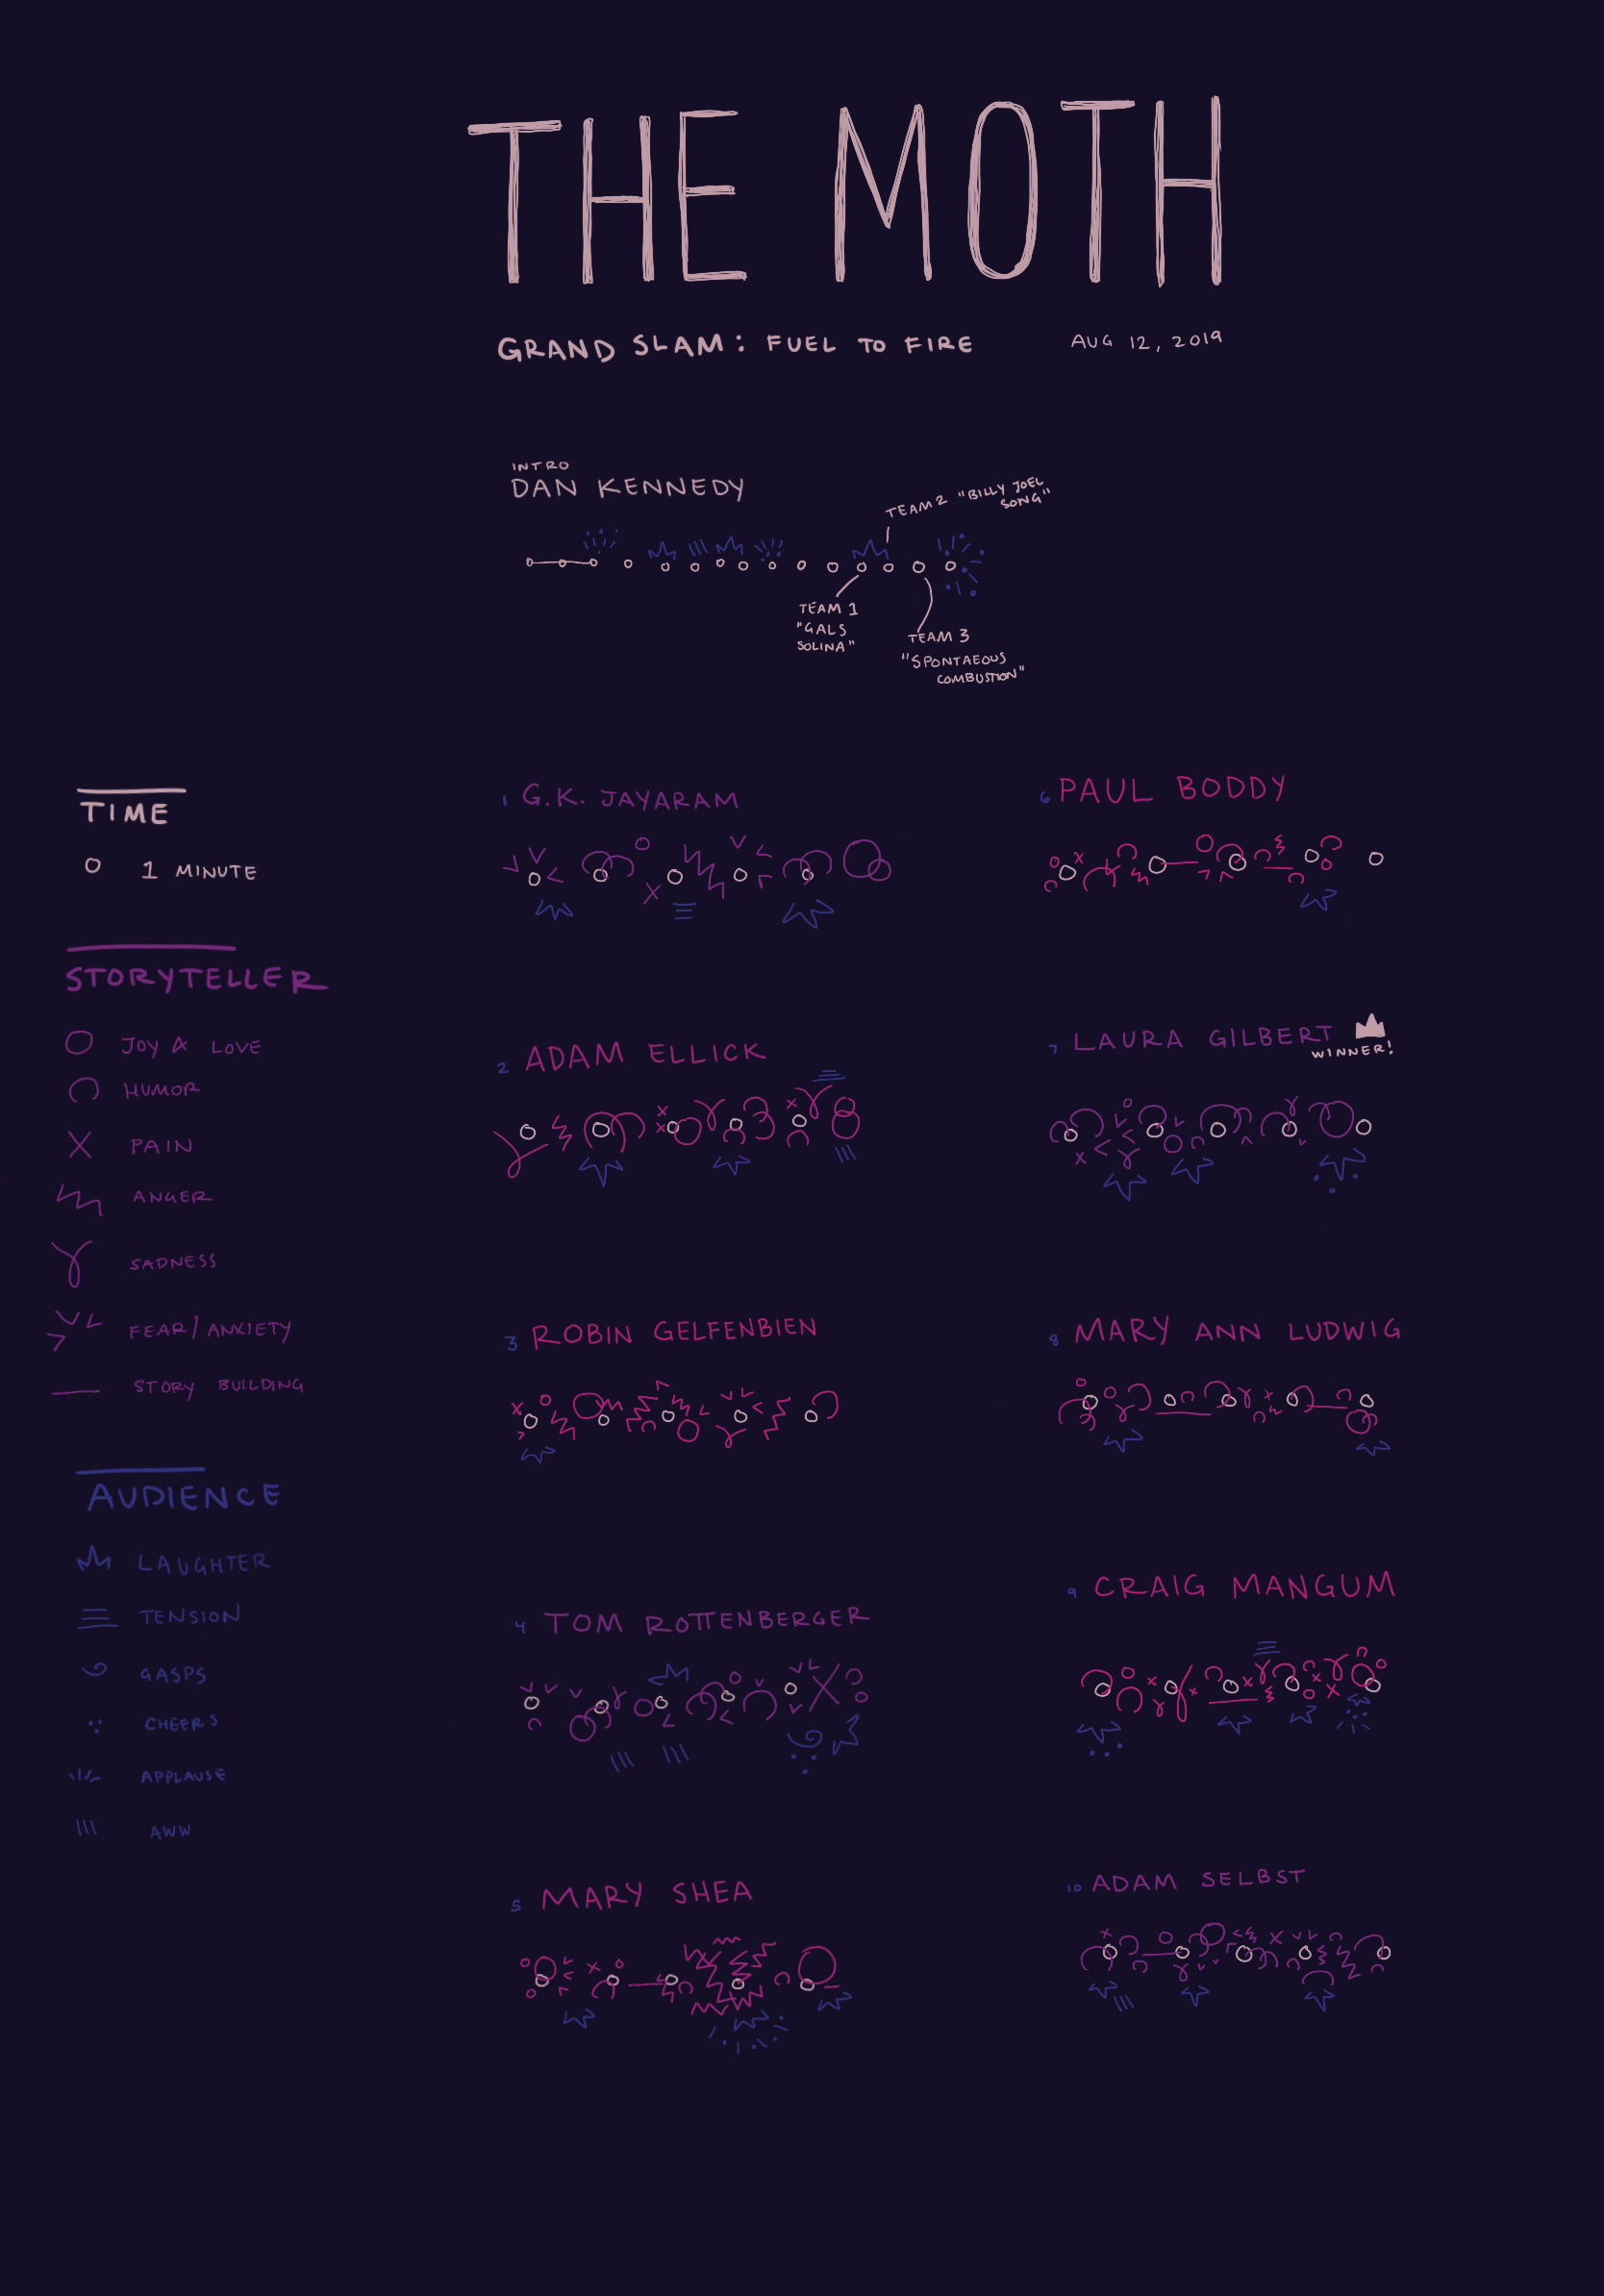 THE MOTH
GRAND SLAM: FUEL TO FIRE
AUG 12, 2019
INTRO
DAN KENNEDY
TEAM 2 "BILLY JOEL
SONG"
TEAM 1
"GALS
SOLINA"
TEAM 3
"SPONTAEOUS
COMBUSTION"
TIME
1 MINUTE
STORYTELLER
JOY & LOVE
HUMOR
PAIN
ANGER
SADNESS
FEAR/ANXIETY
STORY BUILDING
AUDIENCE
LAUGHTER
TENSION
GASPS
CHEERS
APPLAUSE
AWW
1 G.K. JAYARAM
2 ADAM ELLICK
3 ROBIN GELFENBIEN
4 TOM ROTTENBERGER
5 MARY SHEA
6 PAUL BODDY
7 LAURA GILBERT
WINNER!
8 MARY ANN LUDWIG
9 CRAIG MANGUM
10 ADAM SELBST